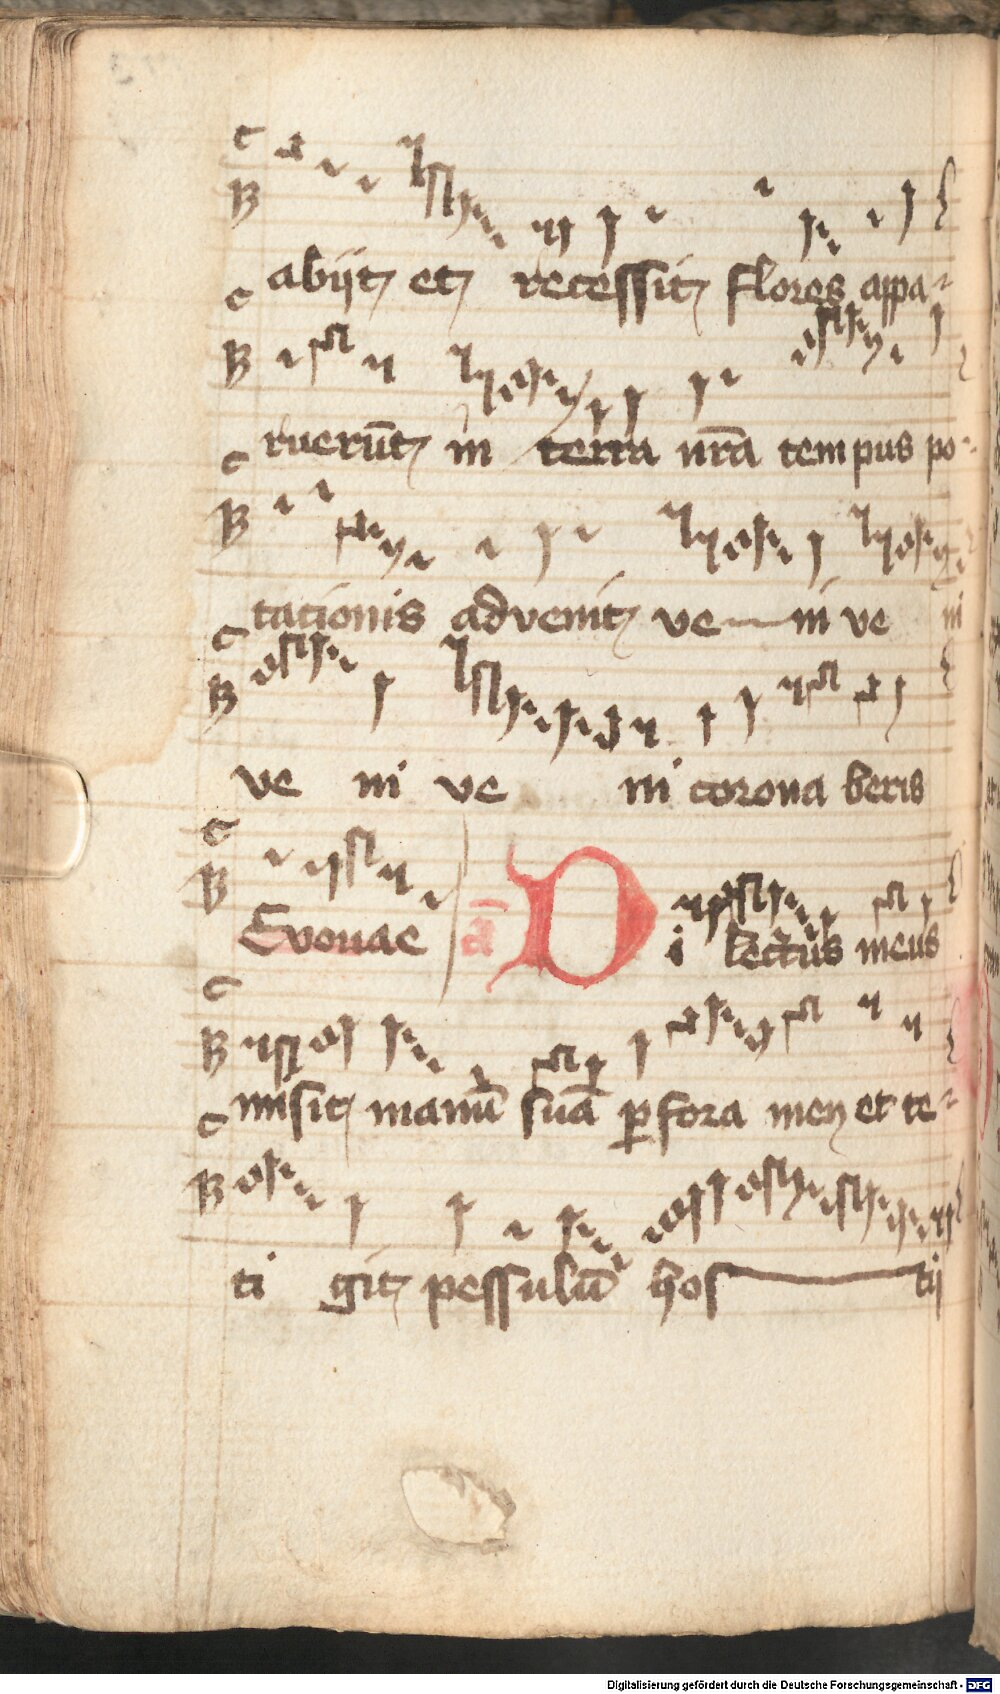 abijt et recessit flores appa-
ruerūt in terra nrā tempus po-
tationis advenit ve ni ve ni
ve ni ve ni corona beris
Evovae ā Di lectus meus
misit manū suā p fora meū et te-
ti git pessulū hos tij
Digitalisierung gefördert durch die Deutsche Forschungsgemeinschaft - DFG